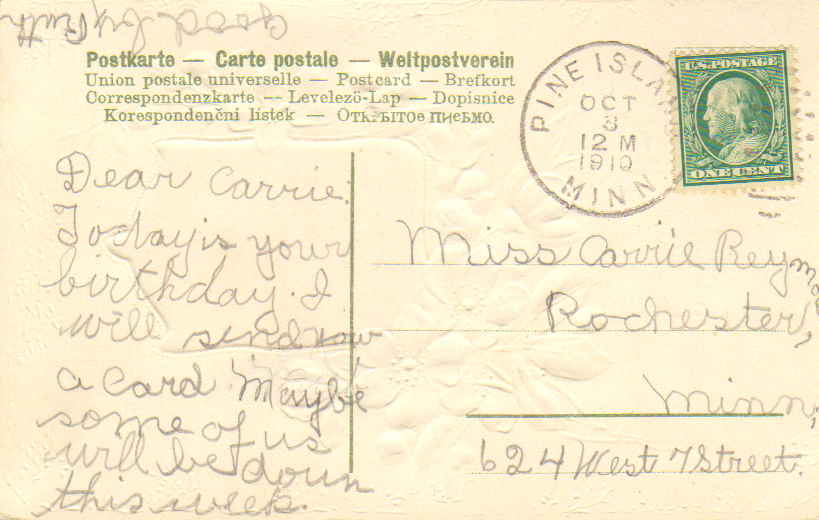 good by Ruth
Postkarte — Carte postale — Weltpostverein
Union postale universelle — Postcard — Brefkort
Correspondenzkarte — Levelezö-Lap — Dopisnice
Korespondenční lístek — Открытое письмо.
PINE ISLA
OCT
3
12 M
1910
MINN
U.S. POSTAGE
ONE CENT
Dear Carrie:
Today is your
birthday. I
will send you
a card Maybe
some of us
will be down
this week.
Miss Carrie Reymo
Rochester,
Minn,
624 West 7 Street.